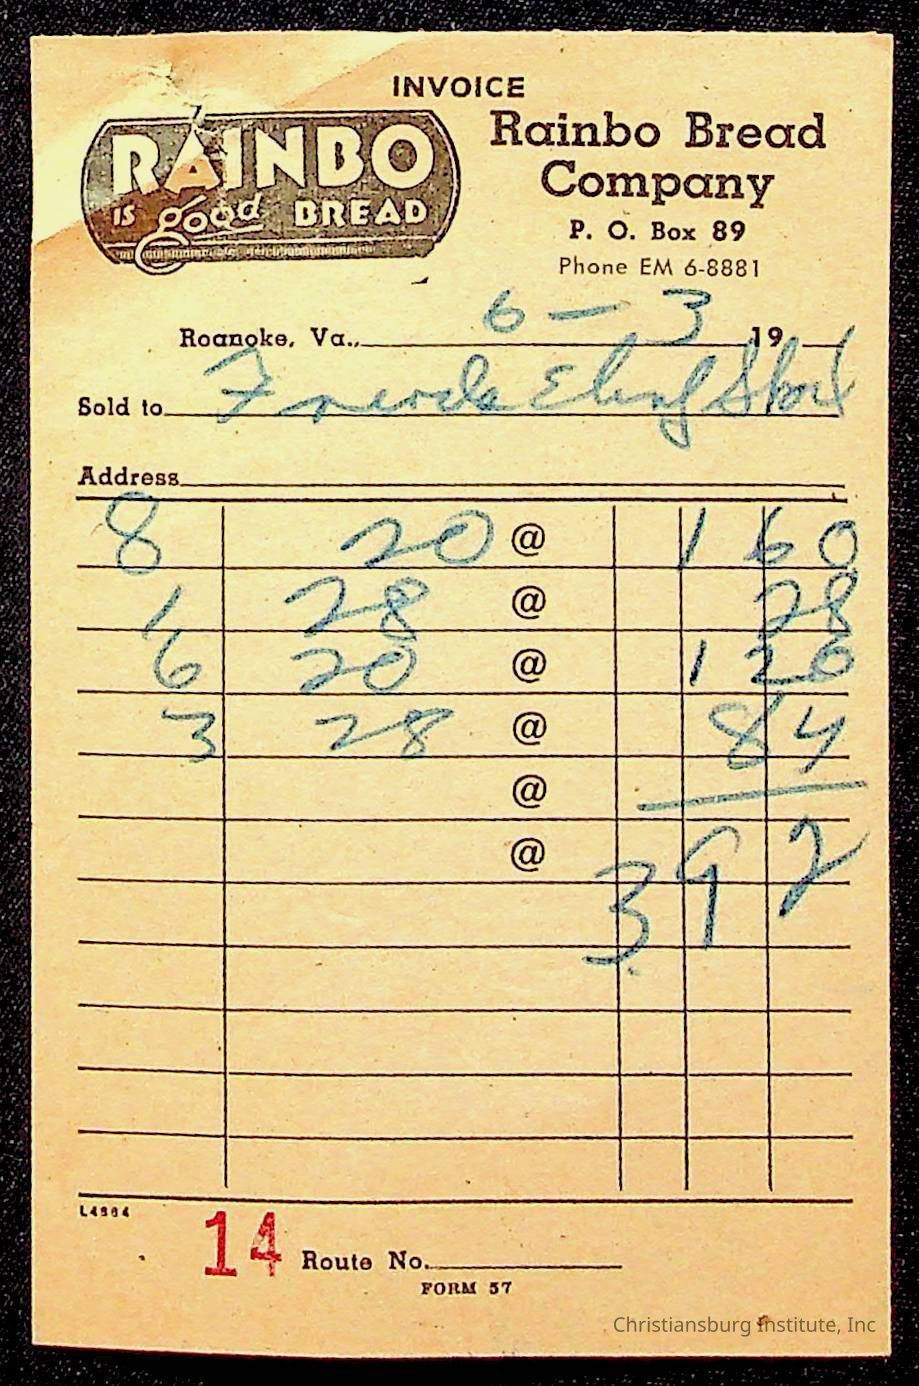 INVOICE
RAINBO
IS good BREAD
Rainbo Bread
Company
P. O. Box 89
Phone EM 6-8881
Roanoke, Va., 6 — 3 19
Sold to
Address
8 20 @ 1 60
1 28 @ 28
6 20 @ 1 20
3 28 @ 84
@
@
3 92
L4984
14 Route No.
FORM 57
Christiansburg Institute, Inc